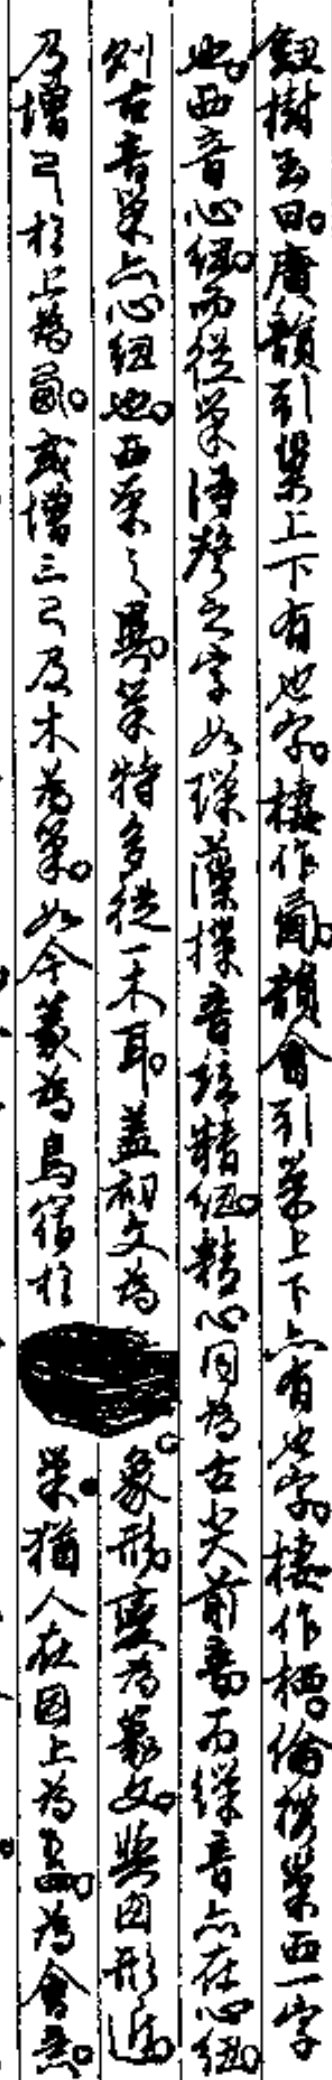 鈕樹玉曰。廣韻引巢上下有也字。棲作𠧧。韻會引巢上下亦有也字。棲作栖。倫按巢西一字
也。西音心紐。而從巢得聲之字如璅藻操音竝精紐。精心同為古尖前音。而繅音亦在心紐。
則古音巢亦心紐也。西巢之異。巢特多從一木耳。蓋初文為 象形。變為篆文。與囟形近。
乃增弓於上為𠧧。或增三弓及木為巢。如今篆為鳥宿於 巢。猶人在囚上為昷。為會意。